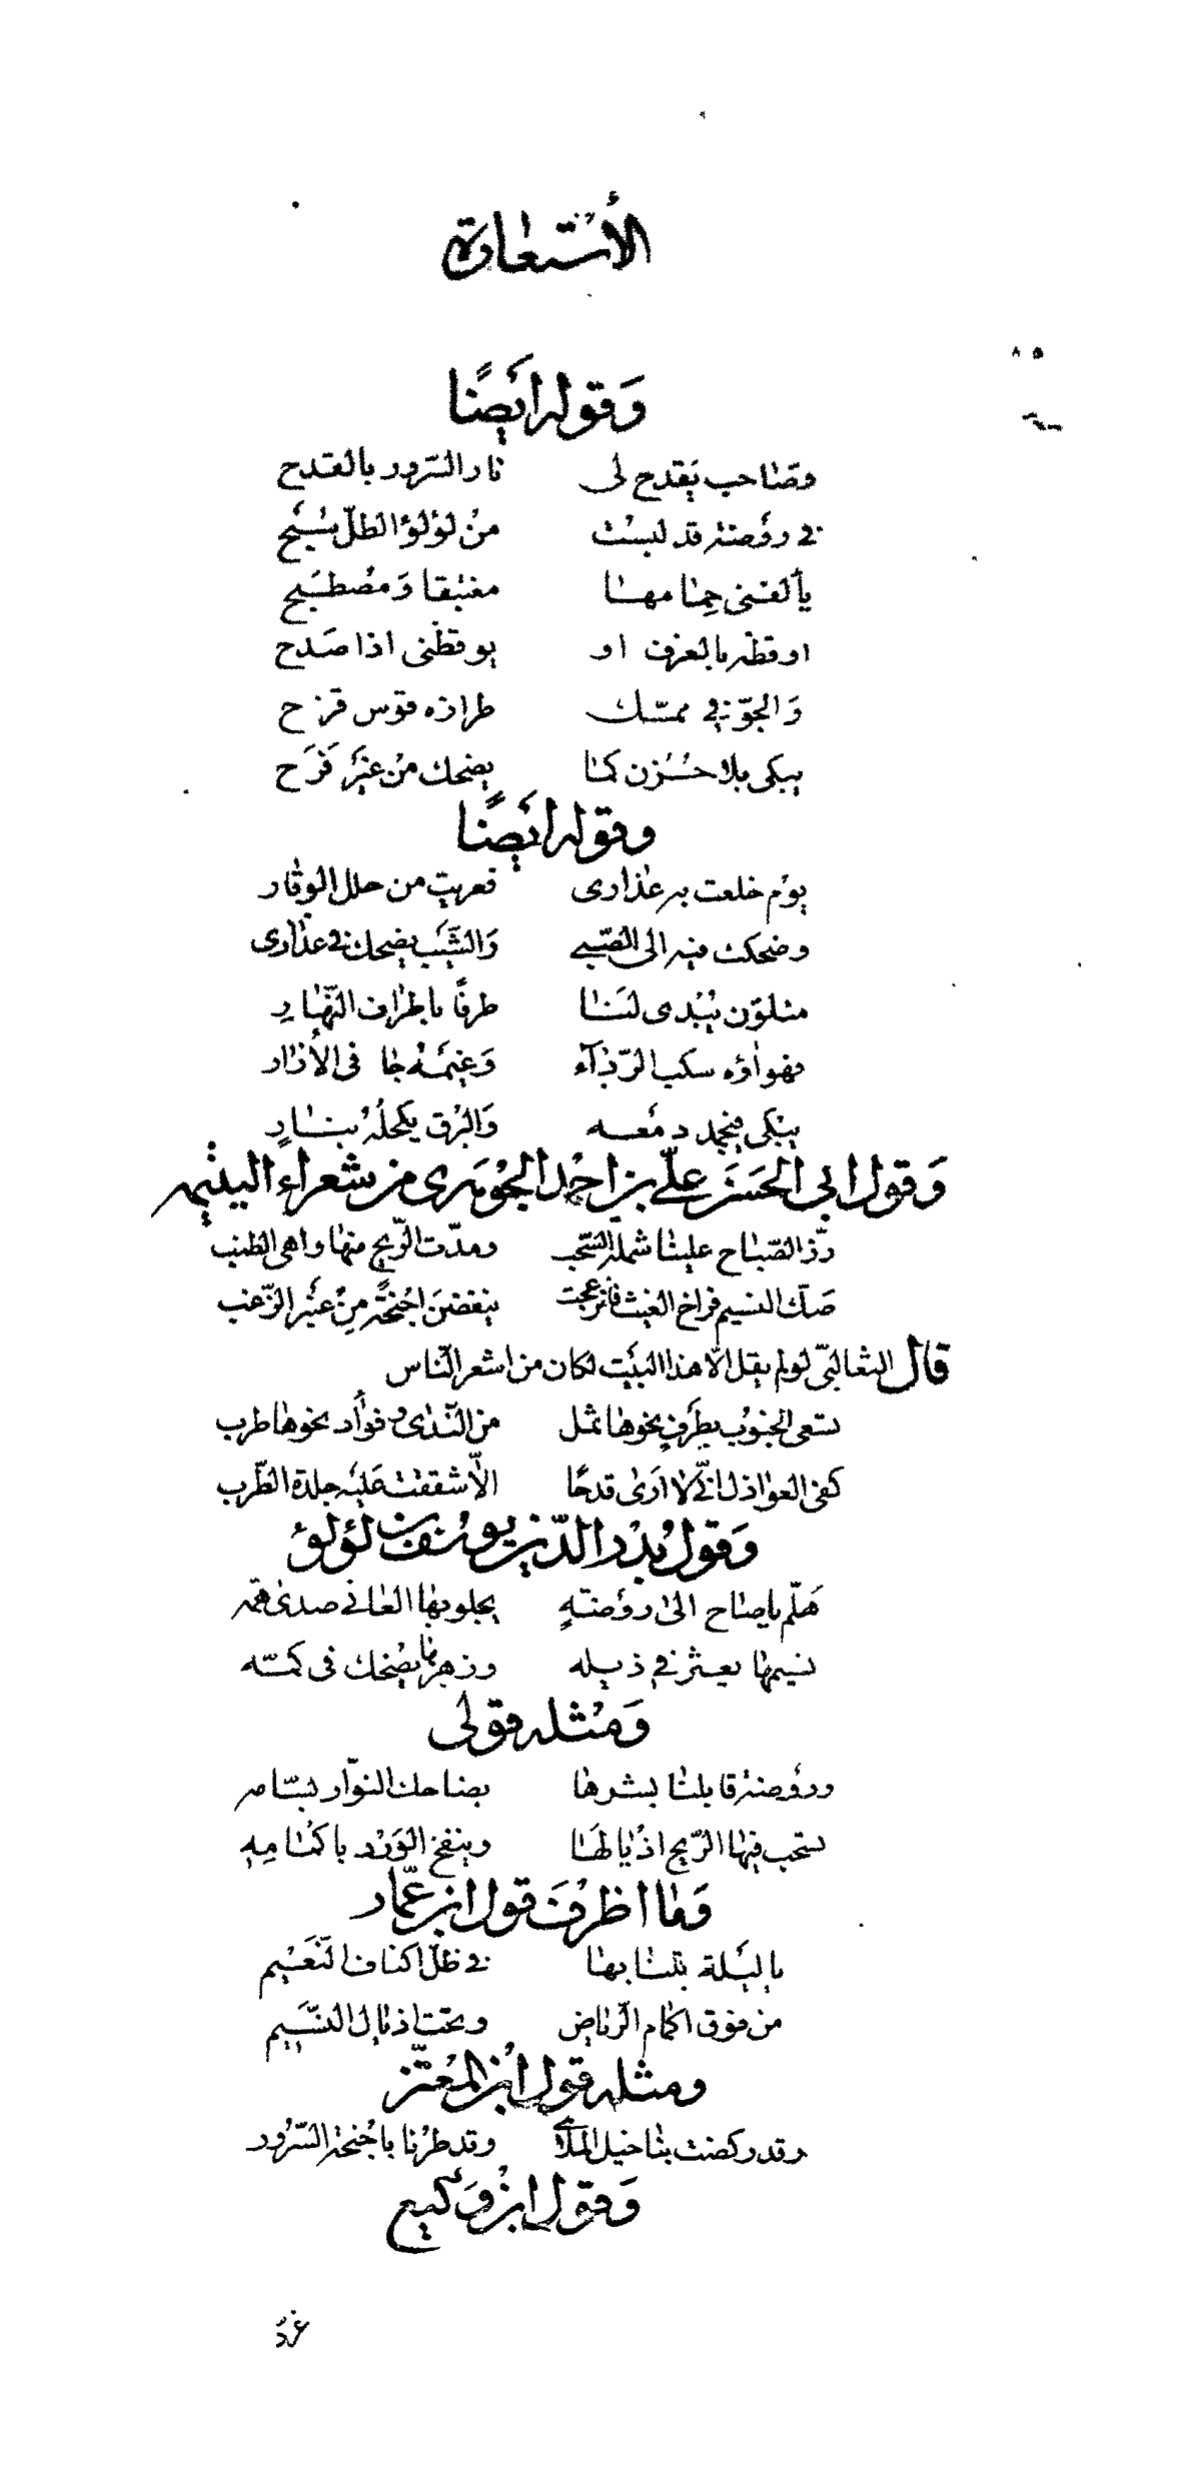 الاستعارة
٨٥
وَقوله ايَضًا
وصاحب يَقدح لى نار السّرور بالقدح
فى روضة قد لبست من لؤلؤ الطلّ سبح
يألفنى حمامها مغتبقا وَمُصطبح
اوقظه بالعزف او يوقظنى اذا صَدح
وَالجوّ فى ممسّك طرازه قوس قزح
يبكى بلا حُزن كما يضحك من غَير فَرَح
وقوله ايَضًا
يوم خلعت به عذارى فعريت من حلل الوقار
وضحكت فيه الى الصّبى وَالشّيَب يضحك فى عذارى
متلوّن يُبدى لنا طرفًا باطراف النّهار
فهواؤه سكب الرّدآء وَغيمه جا فى الأزار
يبكى فيجمد دمعه وَالبرق يكحله بنارٍ
وَقول ابى الحسَن علّى بن احمد الجوهرى من شعراء اليتيمه
زرّ الصّباح علينا شملة السّحب ومدّت الرّيح منها واهى الطنب
صكّ النسيم فراخ الغيث فانزعجت ينفضن اجنحةً من عنبر الزّغب
قال الثعالبّى لو لم يقل الّا هذا البيَت لكان من اشعر النّاس
تسعى الجنوب بطَرفٍ نحوها ثمل من النّدى وفؤاد نحوها طرب
كفى العواذل انّى لا ارَى قدحًا الّا شققت عليَه جلدة الطّرب
وَقول بُدر الدّين يوسف بن لؤلؤ
هَلّم يا صاح الى روضةٍ يجلو بها العانى صدى همّه
نسيمها يعثر فى ذيله وزهرها يضحك فى كمّه
وَمثله قولى
وروضة قابلنا بشرها بضاحك النوّار بسّامه
تسحب فيها الرّيح اذيالهَا وينفح الوَرد باكمامِهِ
وَما اظرفَ قول ابن عمّار
يا ليَلة بتنا بها فى ظلّ اكناف النّعَيم
من فوق اكمام الرّياض وتحت اذيال النّسَيم
ومثله قول ابن المعتّز
وقد ركضت بنا خيل الملاهى وقد طرنا باجنحة السّرور
وَقول ابن وَكيع
غرّد